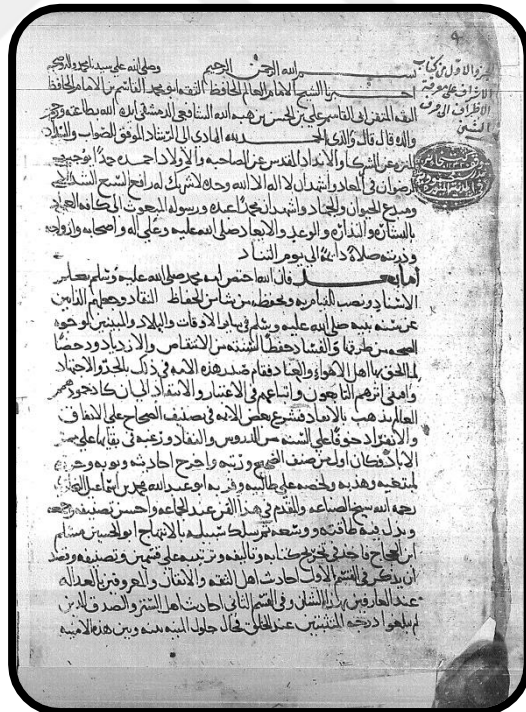 الجزء الاول من كتاب
الاشراف على معرفة
الاطراف الى حرف
الشين
بسم الله الرحمن الرحيم وصلى الله على سيدنا محمد واله وصحبه
اخبرنا الشيخ الامام العالم الحافظ الثقة ابو محمد القاسم بن الامام الحافظ
الثقة ابي القاسم علي بن الحسن بن هبة الله الشافعي الدمشقي ايده الله بطاعته
والده قال قال والدي الحمد لله الهادي الى الرشاد الموفق للصواب والسداد
المنزه عن الشركا والانداد المقدس عن الصاحبة والاولاد احمده حمدا
الرضوان في المعاد واشهد ان لا اله الا الله وحده لا شريك له رافع السبع الشداد
ومبدع الحيوان والجماد واشهد ان محمدا عبده ورسوله المبعوث الى كافة العباد
بالبشارة والنذارة والوعد والايعاد صلى الله عليه وعلى آله واصحابه وازواجه
وذريته صلاة دائمة الى يوم التناد
اما بعد فان الله اختص امة محمد صلى الله عليه وسلم بعلم
الاسناد
عن سنة نبيه صلى الله عليه وسلم في سائر الاوقات والبلاد والمبينين لوجوه
الصحة من طرقها والفساد حفظا للسنة من الانتقاص والازدياد ودحضا
لما الحق بها اهل الاهواء والعناد فقام صدر هذه الامة في ذلك بالجد والاجتهاد
واقتفى اثرهم التابعون واتباعهم في الاعتبار والانتقاد الى ان كاد نجوم
العالم يذهب بالابعاد فشرع بعض الائمة في تصنيف الصحاح على الاتفاق
والانفراد خوفا على السنة من الدروس والنفاد ورغبة في بقائها على
الاباد فكان اول من صنف الصحيح ورتبه واخرج احاديثه وبوبه
لمبتغيه وهذبه ولخصه على طالبيه وقربه ابو عبد الله محمد بن اسماعيل البخاري
رحمه الله شيخ الصناعة والمقدم في هذا الفن عند الجماعة واحسن تصنيفه وجمعه
وبذل فيه طاقته ووسعه ثم سلك سبيله بالانتهاج ابو الحسين مسلم
ابن الحجاج فاخذ في تخريج كتابه وتاليفه وترتيبه على قسمين وتصنيفه وقصد
ان يذكر في القسم الاول احاديث اهل الثقة والاتقان والمعروفين بالعدالة
عند العارفين بهذا الشان وفي القسم الثاني احاديث اهل الستر والصدق الذين
لم يبلغوا درجة المتثبتين عند الخلق فحال حلول المنية بينه وبين هذه الامنية